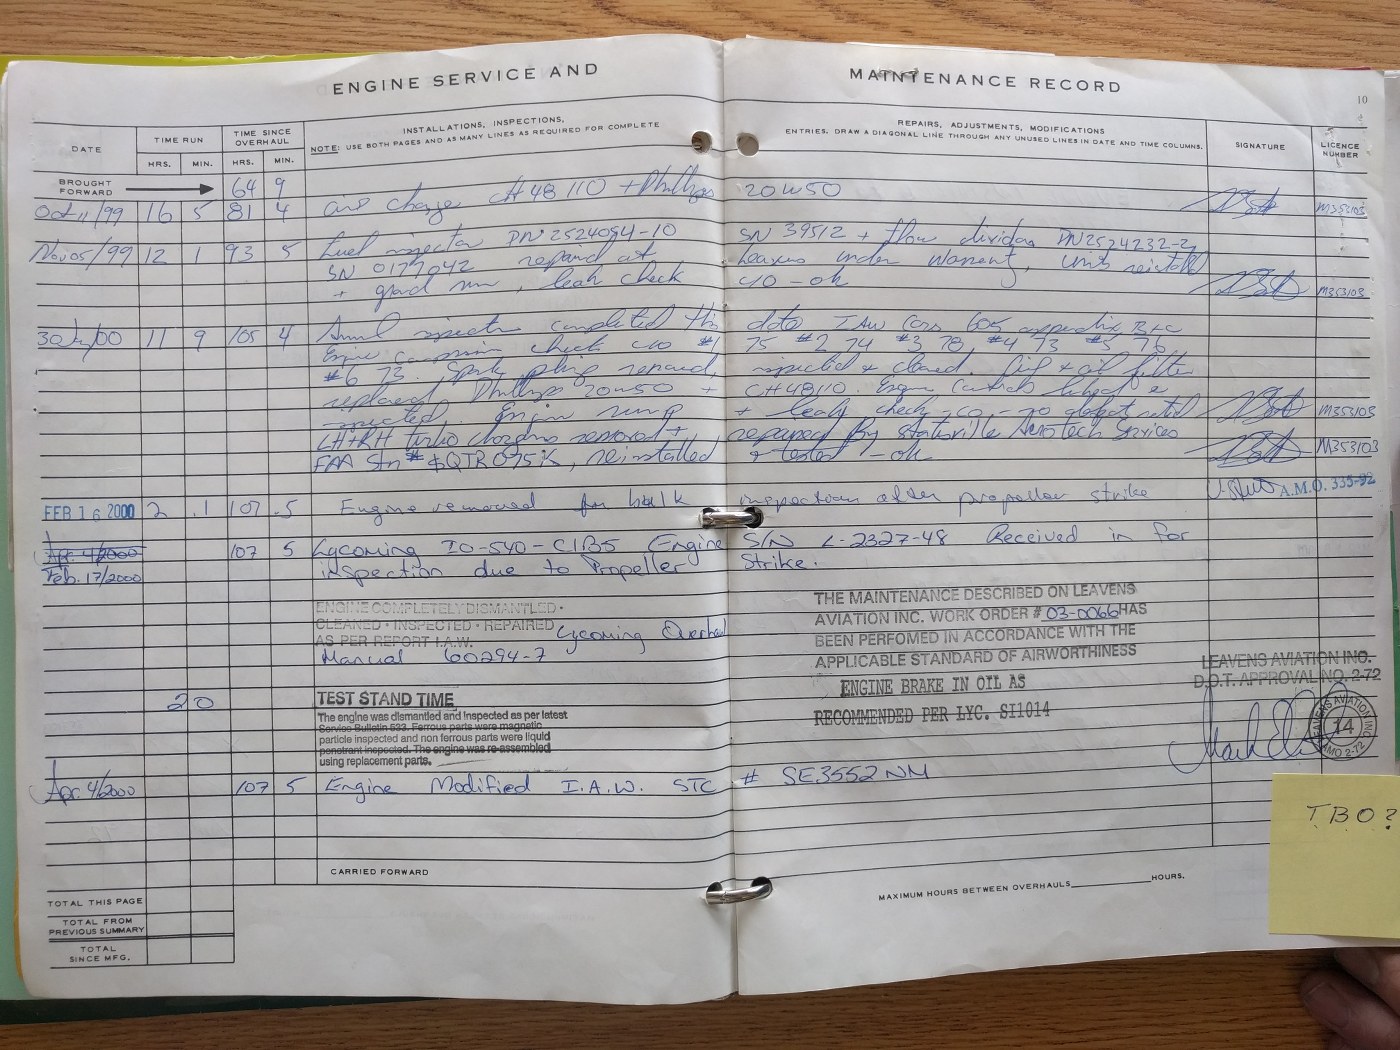 ENGINE SERVICE AND MAINTENANCE RECORD
10
DATE
TIME RUN
HRS. MIN.
TIME SINCE OVERHAUL
HRS. MIN.
INSTALLATIONS, INSPECTIONS, REPAIRS, ADJUSTMENTS, MODIFICATIONS
NOTE: USE BOTH PAGES AND AS MANY LINES AS REQUIRED FOR COMPLETE ENTRIES. DRAW A DIAGONAL LINE THROUGH ANY UNUSED LINES IN DATE AND TIME COLUMNS.
SIGNATURE
LICENCE NUMBER
BROUGHT FORWARD 64 9
Oct 11/99 16 5 81 4 change CH48110 + Phillips 20W50 M353103
Nov 05/99 12 1 93 5 Fuel injector PN 2524054-10 SN 39512 + flow divider PN 2524232-2
SN 0177042 repaired at Leavens under warranty, units reinstalled
+ grnd run, leak check c/o - ok M353103
11 9 105 4 Annual inspection completed this date IAW Cars 605 appendix B+C
Engine compression check c/o #1 75 #2 74 #3 78, #4 73 #5 76
#6 73. Spark plugs removed, inspected + cleaned. Oil + oil filter
replaced Phillips 20W50 + CH48110. Engine controls lubed +
inspected. Engine run up + leak check c/o - no defects noted M353103
LH+RH turbo chargers removed + repaired By Statesville AeroTech Services
FAA Stn # QTR075K, reinstalled + tested - ok M353103
FEB 16 2000 2 .1 107 .5 Engine removed for bulk inspection after propeller strike A.M.O. 335-92
Apr. 4/2000 107 5 Lycoming IO-540-C1B5 Engine S/N L-2327-48 Received in for
Feb. 17/2000 inspection due to Propeller Strike.
ENGINE COMPLETELY DISMANTLED •
CLEANED • INSPECTED • REPAIRED
AS PER REPORT I.A.W. Lycoming Overhaul
Manual 60294-7
THE MAINTENANCE DESCRIBED ON LEAVENS
AVIATION INC. WORK ORDER # 03-0066 HAS
BEEN PERFOMED IN ACCORDANCE WITH THE
APPLICABLE STANDARD OF AIRWORTHINESS
ENGINE BRAKE IN OIL AS
RECOMMENDED PER LYC. SI1014
LEAVENS AVIATION INC.
D.O.T. APPROVAL NO. 2-72
LEAVENS AVIATION INC.
14
AMO 2-72
20 TEST STAND TIME
The engine was dismantled and inspected as per latest
Service Bulletin 533. Ferrous parts were magnetic
particle inspected and non ferrous parts were liquid
penetrant inspected. The engine was re-assembled
using replacement parts.
Apr. 4/2000 107 5 Engine Modified I.A.W. STC # SE3552NM
T.B.O?
CARRIED FORWARD
MAXIMUM HOURS BETWEEN OVERHAULS HOURS.
TOTAL THIS PAGE
TOTAL FROM PREVIOUS SUMMARY
TOTAL SINCE MFG.